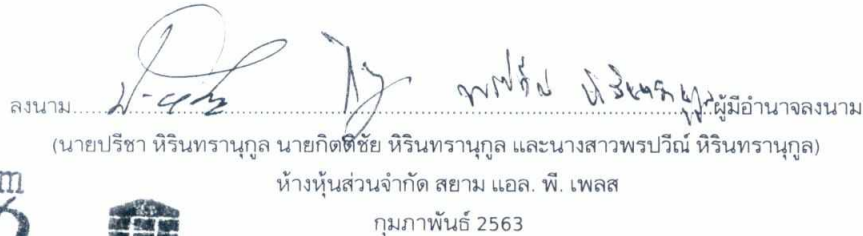 ลงนาม..........ผู้มีอำนาจลงนาม
(นายปรีชา หิรินทรานุกูล นายกิตติชัย หิรินทรานุกูล และนางสาวพรปวีณ์ หิรินทรานุกูล)
ห้างหุ้นส่วนจำกัด สยาม แอล. พี. เพลส
กุมภาพันธ์ 2563